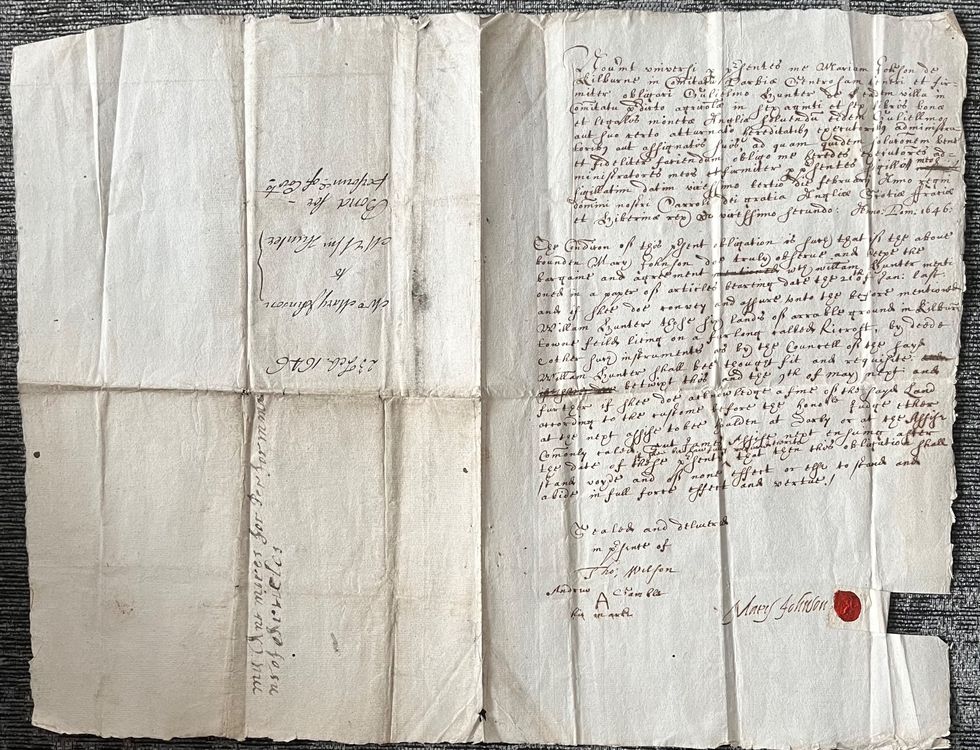 Noverint universi p psentes me Mariam Johnson de
Kilburne in Comitatu Darbiæ teneri et fir-
miter obligari Gulielmo Hunter de eadem villa in
Comitatu pdicto agricolæ in sex libris bonæ
et legalis monetæ Angliæ solvend eidem Gulielmo
aut suo certo atturnato hereditatibus executoribus administra
toribus aut assignatis suis, ad quam quidem solutionem bene
et fideliter faciendum obligo me heredes executores ad-
ministratores meos firmiter p psentes sigillo meo
sigillatim datm vicesimo tertio die februarii Anno regni
domini nostri Carroli dei gratia Angliæ Scotiæ ffraciæ
et Hiberniæ regis vicessimo secundo: Ano: Dom, 1646:
The Condicon of this psent obligation is such that if the above
bounden Mary Johnson doe truly observe and keepe the
bargaine and agreement wth william Hunter menti
oned in a paper of articles bearing date the 21 of Jan: last
and if shee doe convey and assure vnto the before mentioned
William Hunter those six lands of arrable ground in Kilburn
towne feild lieing on a furlong called Ricroft, by deede
or other such instruments as by the Councell of the sayd
William Hunter shall bee thought fit and requisite
betwixt this and the 9th of may next and
further if shee doe acknowledge a fine of the sayd Land
according to the custome before the honord Judge ether
at the next assise to be houlden at Darby or at the Assise
comonly caled next ensuing after
the date of these psents, that then this obligation shall
stand voyde and of none effect or else to stand and
abide in full force effect and vertue /
Sealed and delivered
in psence of
Tho: Wilson
Andrew Chamber
A
his marke
Mary Johnson
23 Feb. 1646
Mrs Mary Johnson
to
Wm Hunter
Bond for
performc of Covts
for performa
ns of Articles